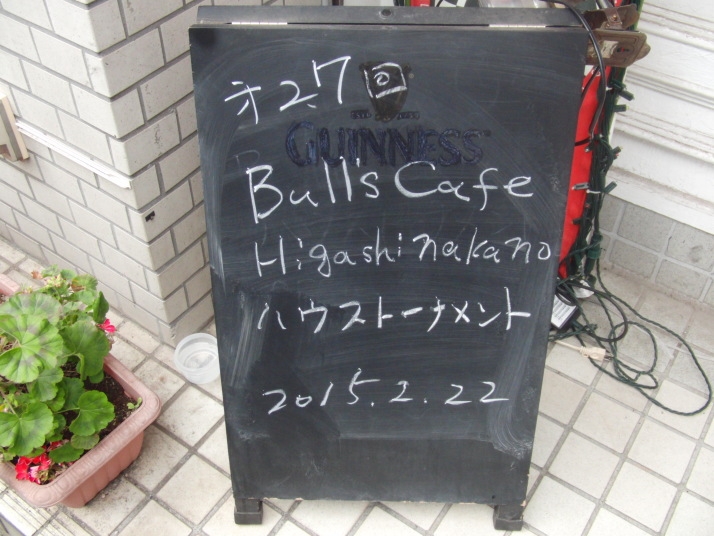 才27回
GUINNESS
Bulls Cafe
Higashinakano
ハウストーナメント
2015.2.22